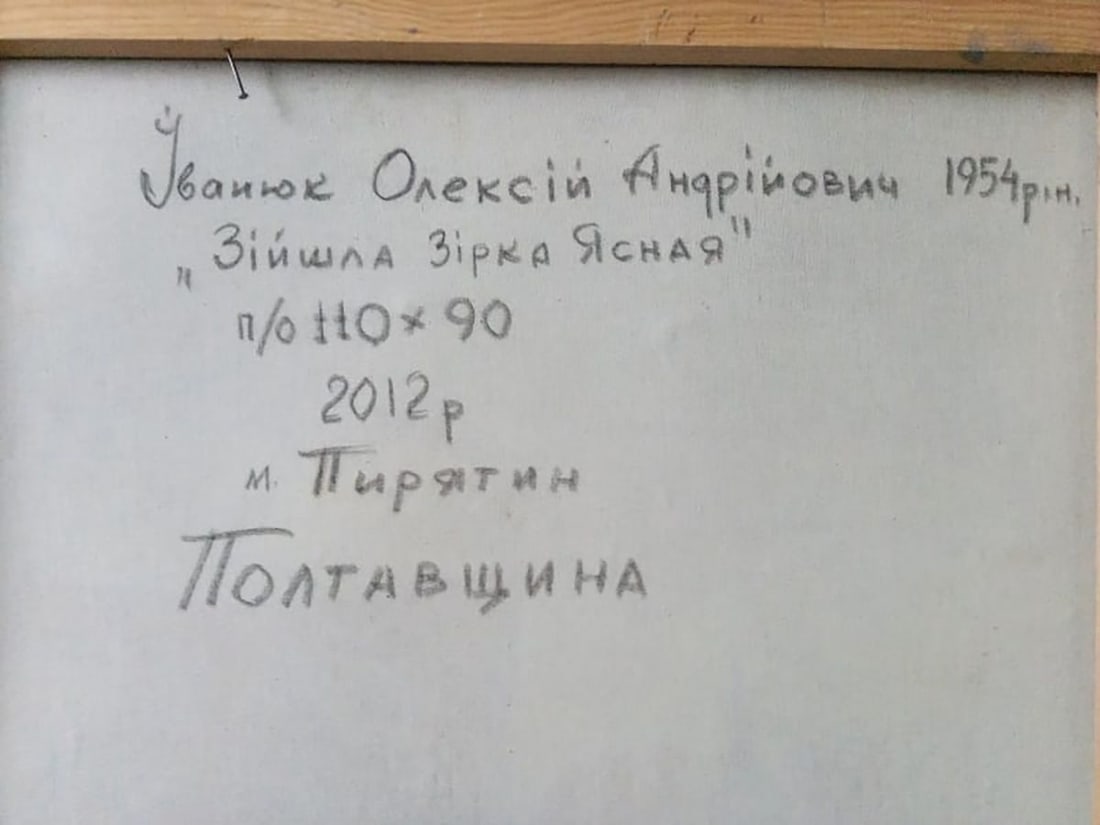 Іванюк Олексій Андрійович 1954р.н.
„Зійшла Зірка Ясная"
п/о 110×90
2012р
м. Пирятин
Полтавщина